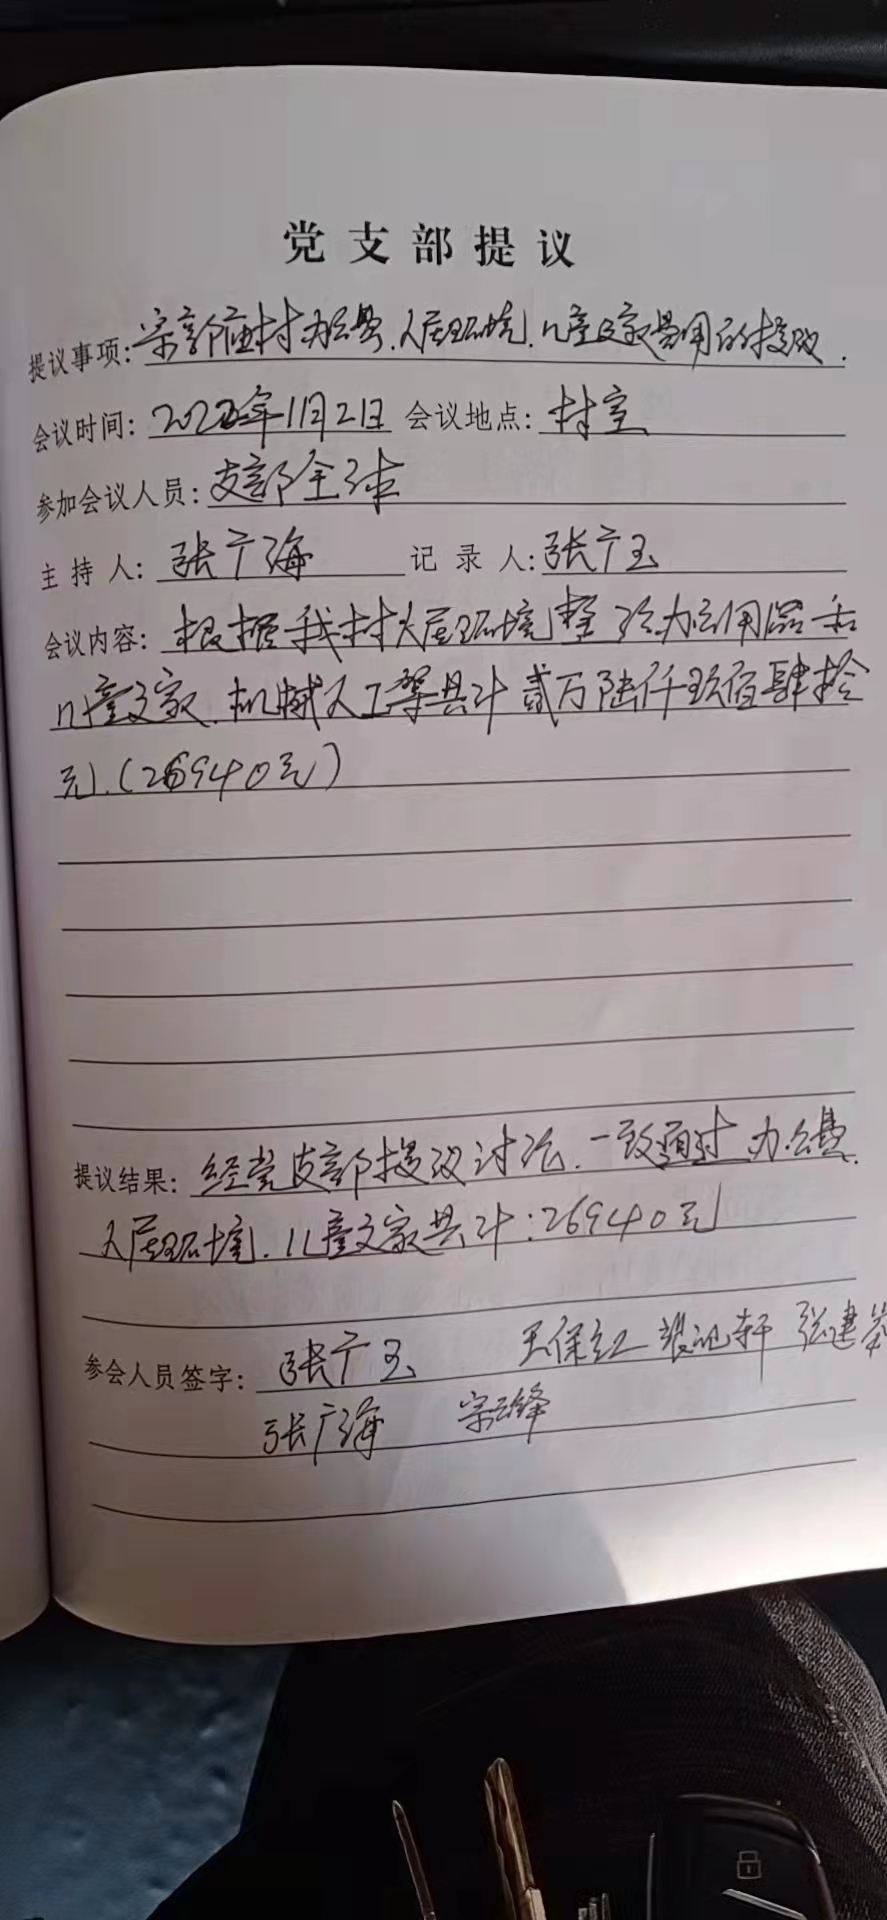 党支部提议
提议事项:宗郭庙村办公费.人居环境.儿童之家费用的提议.
会议时间:2022年11月21日 会议地点:村室
参加会议人员:支部全体
主持人:张广海 记录人:张广玉
会议内容:根据我村人居环境整治.办公用品和
儿童之家.机械人工等共计贰万陆仟玖佰肆拾
元.(26940元)
提议结果:经党支部提议讨论.一致通过办公费.
人居环境.儿童之家共计:26940元
参会人员签字:张广玉 王保红 张建
张广海 宗云峰